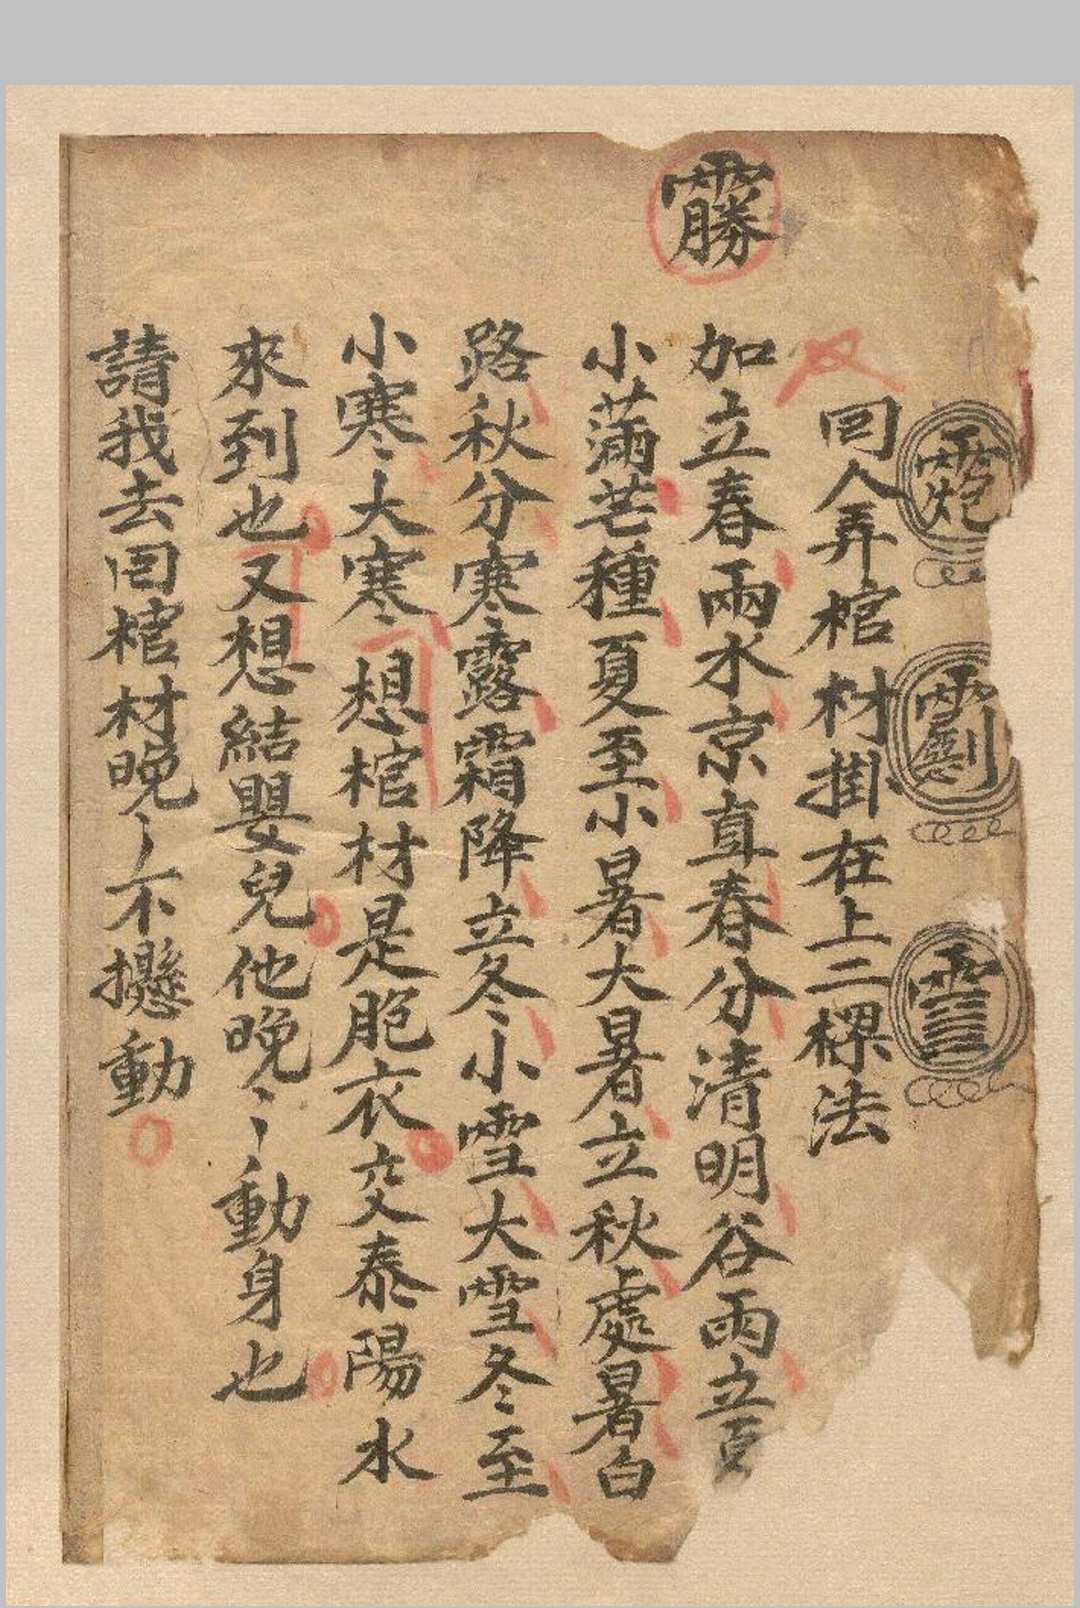 回人弄棺材掛在上二樑法
加立春兩水京直春分清明谷雨立夏
小滿芒種夏至小暑大暑立秋處暑白
路秋分寒露霜降立冬小雪大雪冬至
小寒大寒想棺材是胞衣交泰陽水
來到也又想結嬰兒他晚〻動身也
請我去回棺材晚〻不攇動